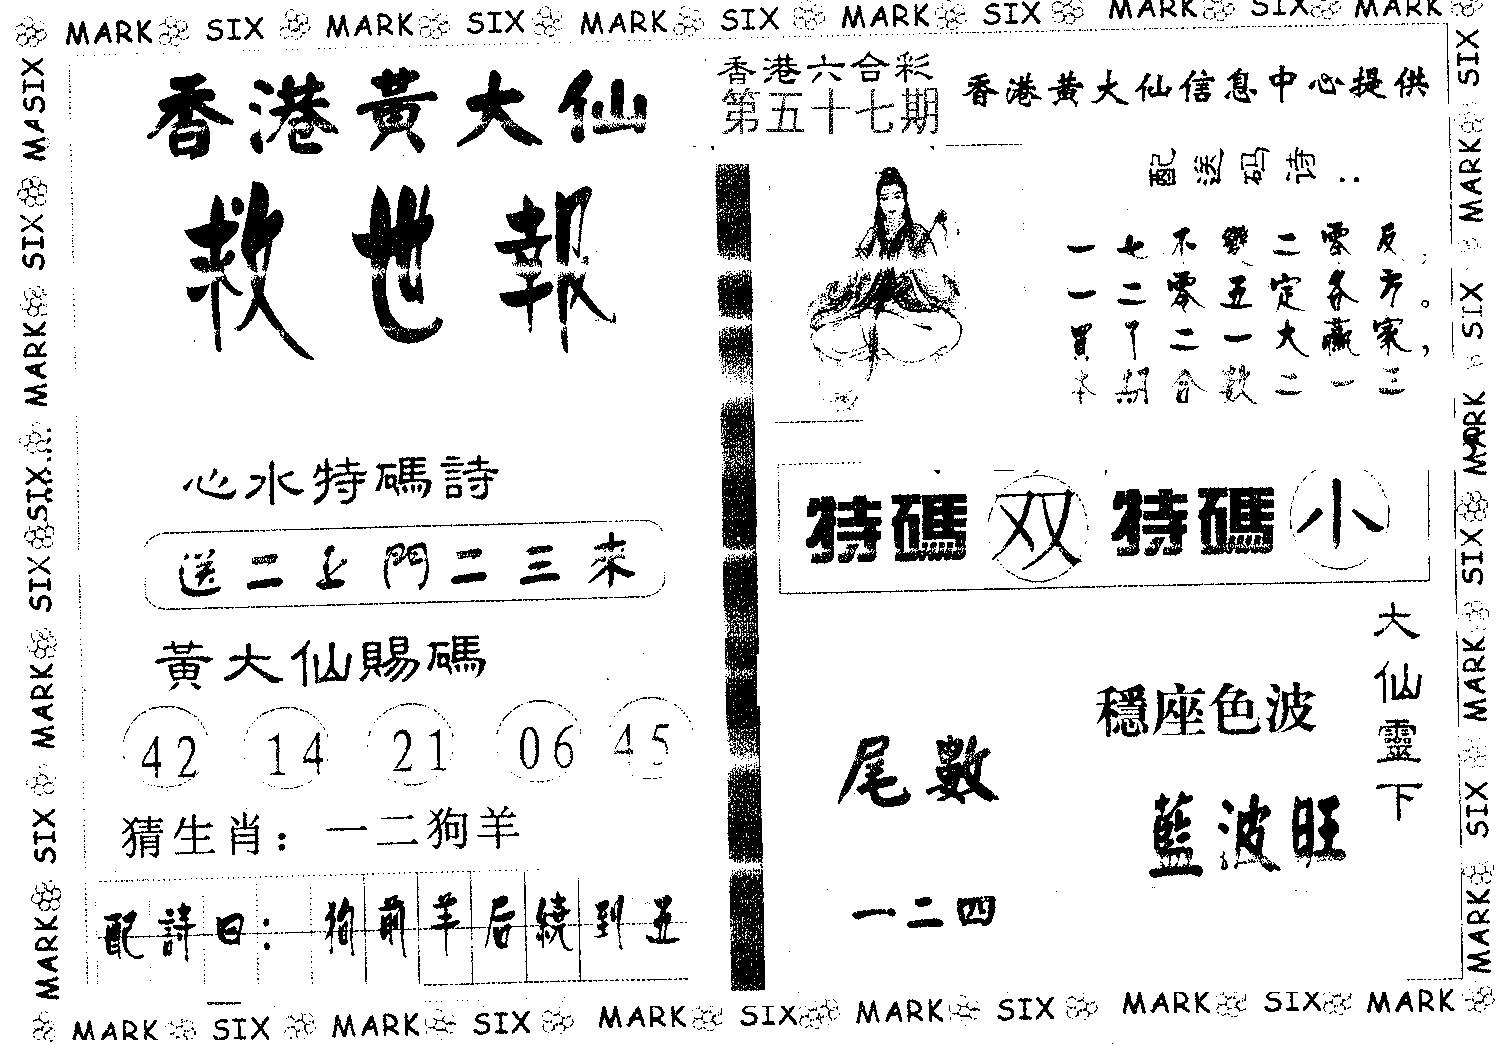 MARK SIX MARK SIX MARK SIX MARK SIX MARK SIX MARK
香港黃大仙
救世報
心水特碼詩
送二上門二三來
黃大仙賜碼
42 14 21 06 45
猜生肖：一二狗羊
配詩曰：狗前羊后繞到五
香港六合彩
第五十七期
香港黃大仙信息中心提供
配送码诗：
一七不變二零反，
一二零五定各方。
買了二一大贏家，
本期合数二一三
特碼双 特碼小
大仙靈下
穩座色波
藍波旺
尾數
一二四
MARK SIX MARK SIX MARK SIX MARK SIX MARK SIX MARK